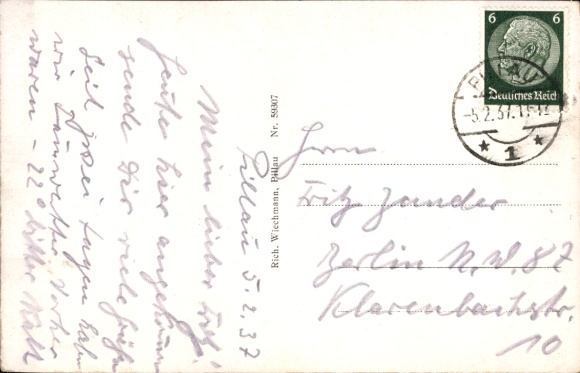 Pillau 5.2.37
Mein lieber Fritz!
Heute hier angekommen
sende Dir viele Grüße
Seit zwei Tagen haben
wir Tauwetter. Vorher
waren - 22° bitter kalt
Rich. Wiechmann, Pillau Nr. 59307
6 6
Deutsches Reich
PILLAU
-5.2.37.11-12
* 1 *
Herrn
Fritz Zander
Berlin N.W. 87
Klarenbachstr.
10